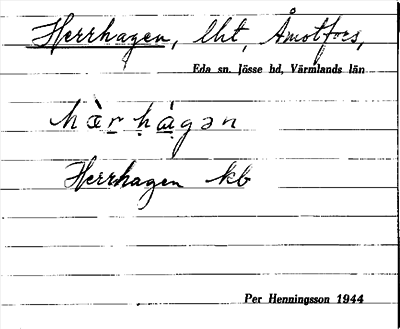 Herrhagen, lht, Åmotfors,
Eda sn. Jösse hd, Värmlands län
hàr hágən
Herrhagen kb
Per Henningsson 1944